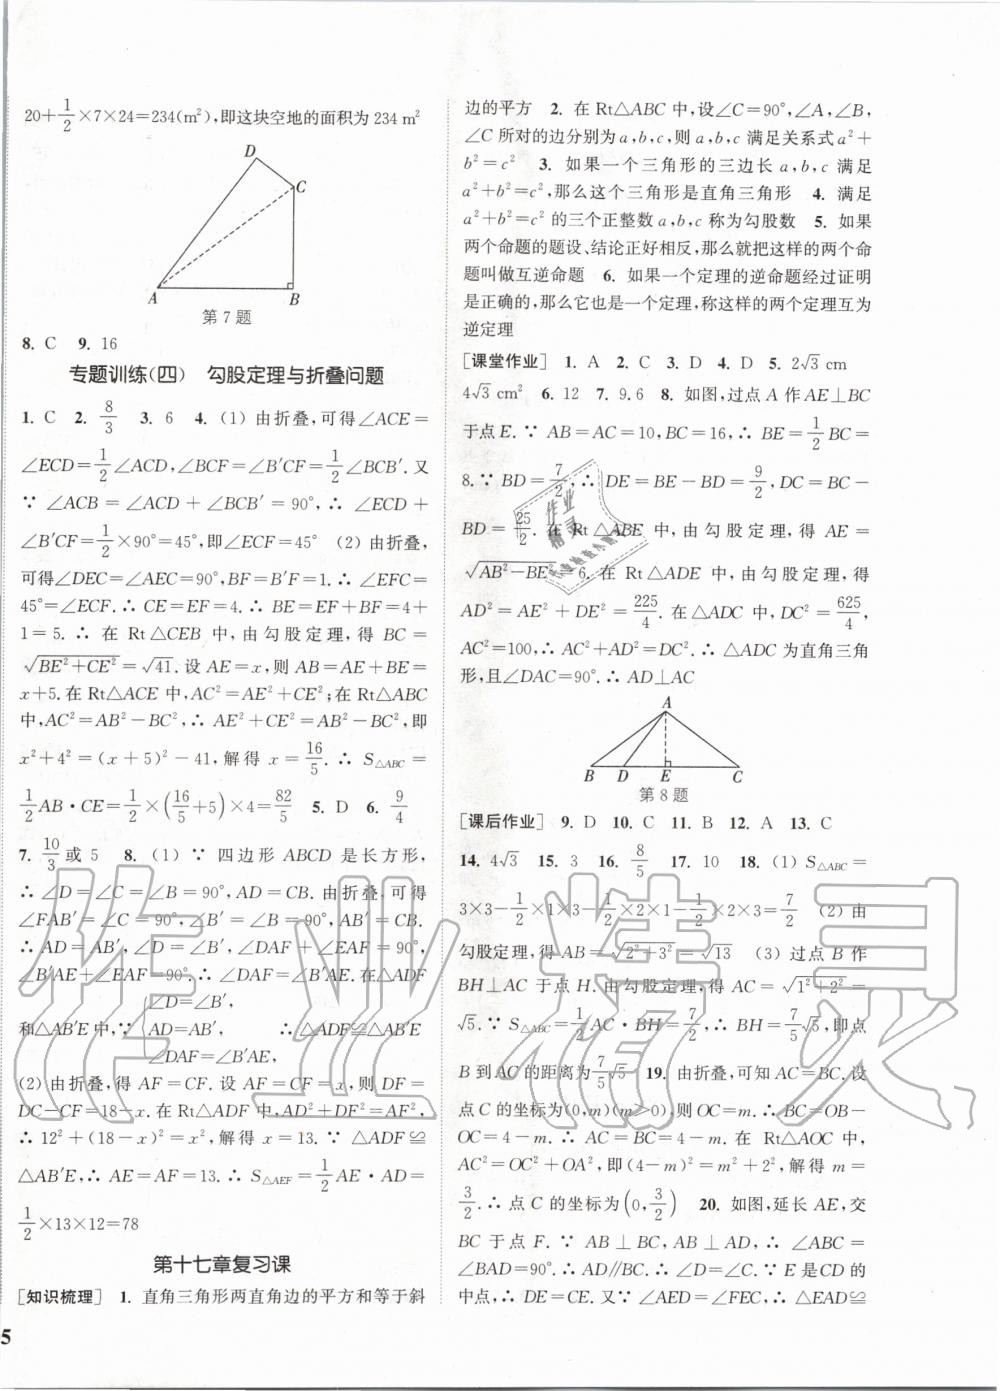 20+1/2×7×24=234(m²),即这块空地的面积为 234 m²
D
C
A
B
第 7 题
8. C 9. 16
专题训练(四) 勾股定理与折叠问题
1. C 2. 8/3 3. 6 4. (1) 由折叠,可得∠ACE=
∠ECD=1/2∠ACD,∠BCF=∠B′CF=1/2∠BCB′. 又
∵ ∠ACB = ∠ACD + ∠BCB′ = 90°,∴ ∠ECD +
∠B′CF=1/2×90°=45°,即∠ECF=45° (2) 由折叠,
可得∠DEC=∠AEC=90°,BF=B′F=1.∴ ∠EFC=
45°=∠ECF.∴ CE=EF=4.∴ BE=EF+BF=4+
1=5.∴ 在 Rt△CEB 中,由勾股定理,得 BC=
√(BE²+CE²)=√41. 设 AE=x,则 AB=AE+BE=
x+5. 在 Rt△ACE 中,AC²=AE²+CE²;在 Rt△ABC
中,AC²=AB²-BC²,∴ AE²+CE²=AB²-BC²,即
x²+4²=(x+5)²-41,解得 x=16/5.∴ S△ABC=
1/2AB·CE=1/2×(16/5+5)×4=82/5 5. D 6. 9/4
7. 10/3或 5 8. (1) ∵ 四边形 ABCD 是长方形,
∴ ∠D=∠C=∠B=90°,AD=CB. 由折叠,可得
∠FAB′=∠C=90°,∠B′=∠B=90°,AB′=CB.
∴ AD=AB′,∠D=∠B′,∠DAF+∠EAF=90°,
∠B′AE+∠EAF=90°.∴ ∠DAF=∠B′AE. 在△ADF
∠D=∠B′,
和△AB′E 中,∵ AD=AB′, ∴ △ADF≌△AB′E
∠DAF=∠B′AE,
(2) 由折叠,得 AF=CF. 设 AF=CF=x,则 DF=
DC-CF=18-x. 在 Rt△ADF 中,AD²+DF²=AF²,
∴ 12²+(18-x)²=x²,解得 x=13.∵ △ADF≌
△AB′E,∴ AE=AF=13.∴ S△AEF=1/2AE·AD=
1/2×13×12=78
第十七章复习课
[知识梳理] 1. 直角三角形两直角边的平方和等于斜
5
边的平方 2. 在 Rt△ABC 中,设∠C=90°,∠A,∠B,
∠C 所对的边分别为 a,b,c,则 a,b,c 满足关系式 a²+
b²=c² 3. 如果一个三角形的三边长 a,b,c 满足
a²+b²=c²,那么这个三角形是直角三角形 4. 满足
a²+b²=c² 的三个正整数 a,b,c 称为勾股数 5. 如果
两个命题的题设、结论正好相反,那么就把这样的两个命
题叫做互逆命题 6. 如果一个定理的逆命题经过证明
是正确的,那么它也是一个定理,称这样的两个定理互为
逆定理
[课堂作业] 1. A 2. C 3. D 4. D 5. 2√3 cm
4√3 cm² 6. 12 7. 9.6 8. 如图,过点 A 作 AE⊥BC
于点 E.∵ AB=AC=10,BC=16,∴ BE=1/2BC=
8.∵ BD=7/2,∴ DE=BE-BD=9/2,DC=BC-
BD=25/2. 在 Rt△ABE 中,由勾股定理,得 AE=
√(AB²-BE²)=6. 在 Rt△ADE 中,由勾股定理,得
AD²=AE²+DE²=225/4. 在△ADC 中,DC²=625/4,
AC²=100,∴ AC²+AD²=DC².∴ △ADC 为直角三角
形,且∠DAC=90°.∴ AD⊥AC
A
B D E C
第 8 题
[课后作业] 9. D 10. C 11. B 12. A 13. C
14. 4√3 15. 3 16. 8/5 17. 10 18. (1) S△ABC=
3×3-1/2×1×3-1/2×2×1-1/2×2×3=7/2 (2) 由
勾股定理,得 AB=√(2²+3²)=√13 (3) 过点 B 作
BH⊥AC 于点 H. 由勾股定理,得 AC=√(1²+2²)=
√5.∵ S△ABC=1/2AC·BH=7/2,∴ BH=7/5√5,即点
B 到 AC 的距离为7/5√5 19. 由折叠,可知 AC=BC. 设
点 C 的坐标为(0,m)(m>0),则 OC=m.∴ BC=OB-
OC=4-m.∴ AC=BC=4-m. 在 Rt△AOC 中,
AC²=OC²+OA²,即(4-m)²=m²+2²,解得 m=
3/2.∴ 点 C 的坐标为(0,3/2) 20. 如图,延长 AE,交
BC 于点 F.∵ AB⊥BC,AB⊥AD,∴ ∠ABC=
∠BAD=90°.∴ AD∥BC.∴ ∠D=∠C.∵ E 是 CD 的
中点,∴ DE=CE. 又∵ ∠AED=∠FEC,∴ △EAD≌
作业精灵